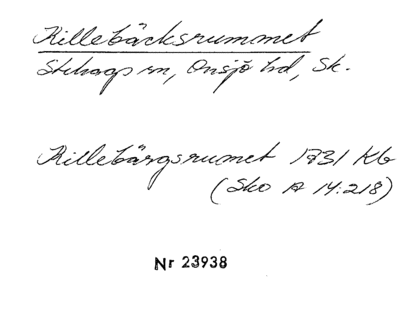 Rillebäcksrummet
Stehags sn, Onsjö hd, Sk.
Rillebärgsrumet 1731 Kb
(Sko A 14:218)
Nr 23938